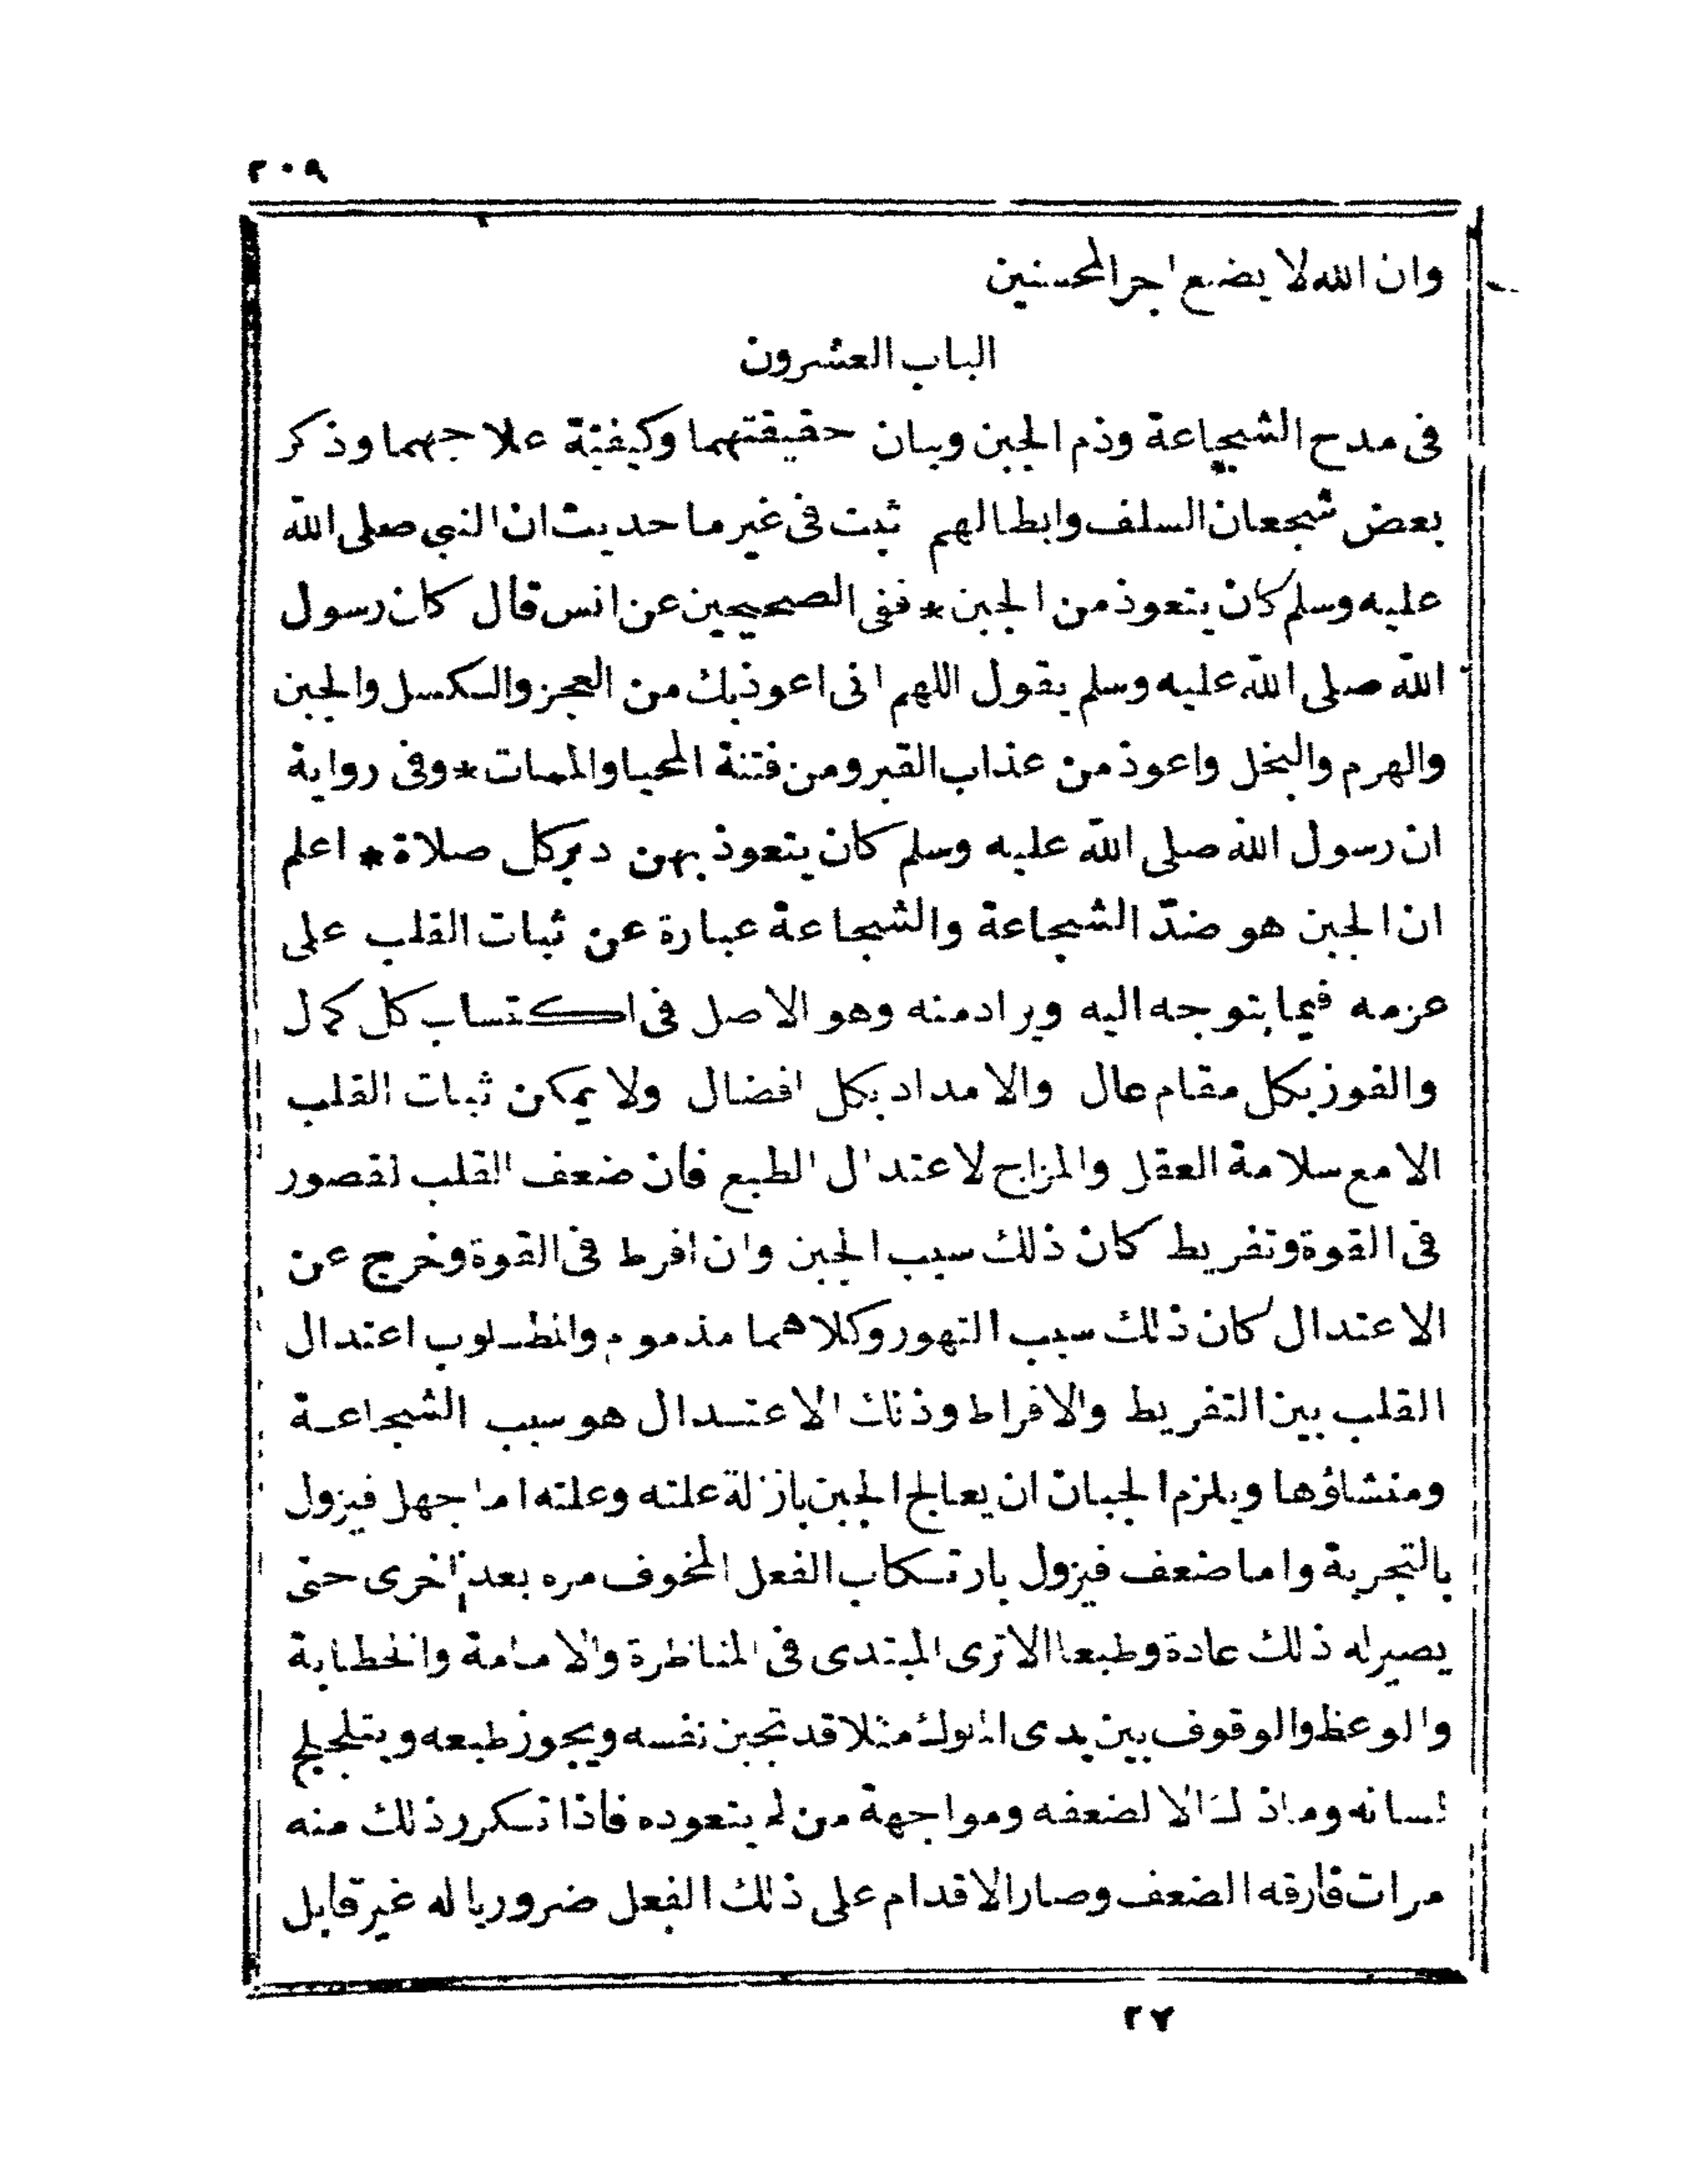 ٢٠٩
وان الله لا يضيع اجر المحسنين
الباب العشرون
فى مدح الشجاعة وذم الجبن وبيان حقيقتهما وكيفية علاجهما وذكر
بعض شجعان السلف وابطالهم ثبت فى غير ما حديث ان النبي صلى الله
عليه وسلم كان يتعوذ من الجبن * ففى الصحيحين عن انس قال كان رسول
الله صلى الله عليه وسلم يقول اللهم انى اعوذ بك من العجز والكسل والجبن
والهرم والبخل واعوذ من عذاب القبر ومن فتنة المحيا والممات * وفى رواية
ان رسول الله صلى الله عليه وسلم كان يتعوذ بهن دبر كل صلاة * اعلم
ان الجبن هو ضدّ الشجاعة والشجاعة عبارة عن ثبات القلب على
عزمه فيما يتوجه اليه ويراد منه وهو الاصل فى اكتساب كل كمال
والفوز بكل مقام عال والامداد بكل افضال ولا يمكن ثبات القلب
الا مع سلامة العقل والمزاج لاعتدال الطبع فان ضعف القلب لقصور
فى القوة وتفريط كان ذلك سبب الجبن وان افرط فى القوة وخرج عن
الاعتدال كان ذلك سبب التهور وكلاهما مذموم والمطلوب اعتدال
القلب بين التفريط والافراط وذلك الاعتدال هو سبب الشجاعة
ومنشاؤها ويلزم الجبان ان يعالج الجبن بازالة علته وعلته اما جهل فيزول
بالتجربة واما ضعف فيزول بارتكاب الفعل المخوف مره بعد اخرى حتى
يصير له ذلك عادة وطبعا الا ترى المبتدى فى المناظرة والامامة والخطابة
والوعظ والوقوف بين يدى الملوك مثلا قد تجبن نفسه ويجوز طبعه ويتلجلج
لسانه وما ذلك الا لضعفه ومواجهة من لم يتعوده فاذا تكرر ذلك منه
مرات فارقه الضعف وصار الاقدام على ذلك الفعل ضروريا له غير قابل
٢٧